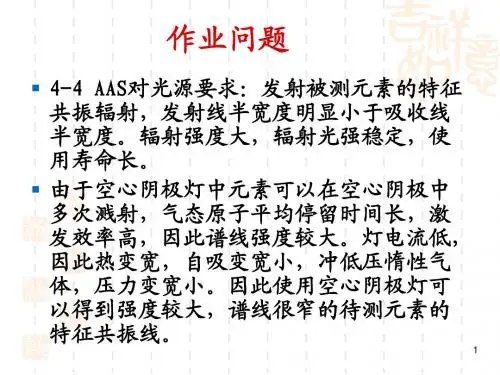 作业问题
4-4 AAS对光源要求：发射被测元素的特征
共振辐射，发射线半宽度明显小于吸收线
半宽度。辐射强度大，辐射光强稳定，使
用寿命长。
由于空心阴极灯中元素可以在空心阴极中
多次溅射，气态原子平均停留时间长，激
发效率高，因此谱线强度较大。灯电流低，
因此热变宽，自吸变宽小，冲低压惰性气
体，压力变宽小。因此使用空心阴极灯可
以得到强度较大，谱线很窄的待测元素的
特征共振线。
1